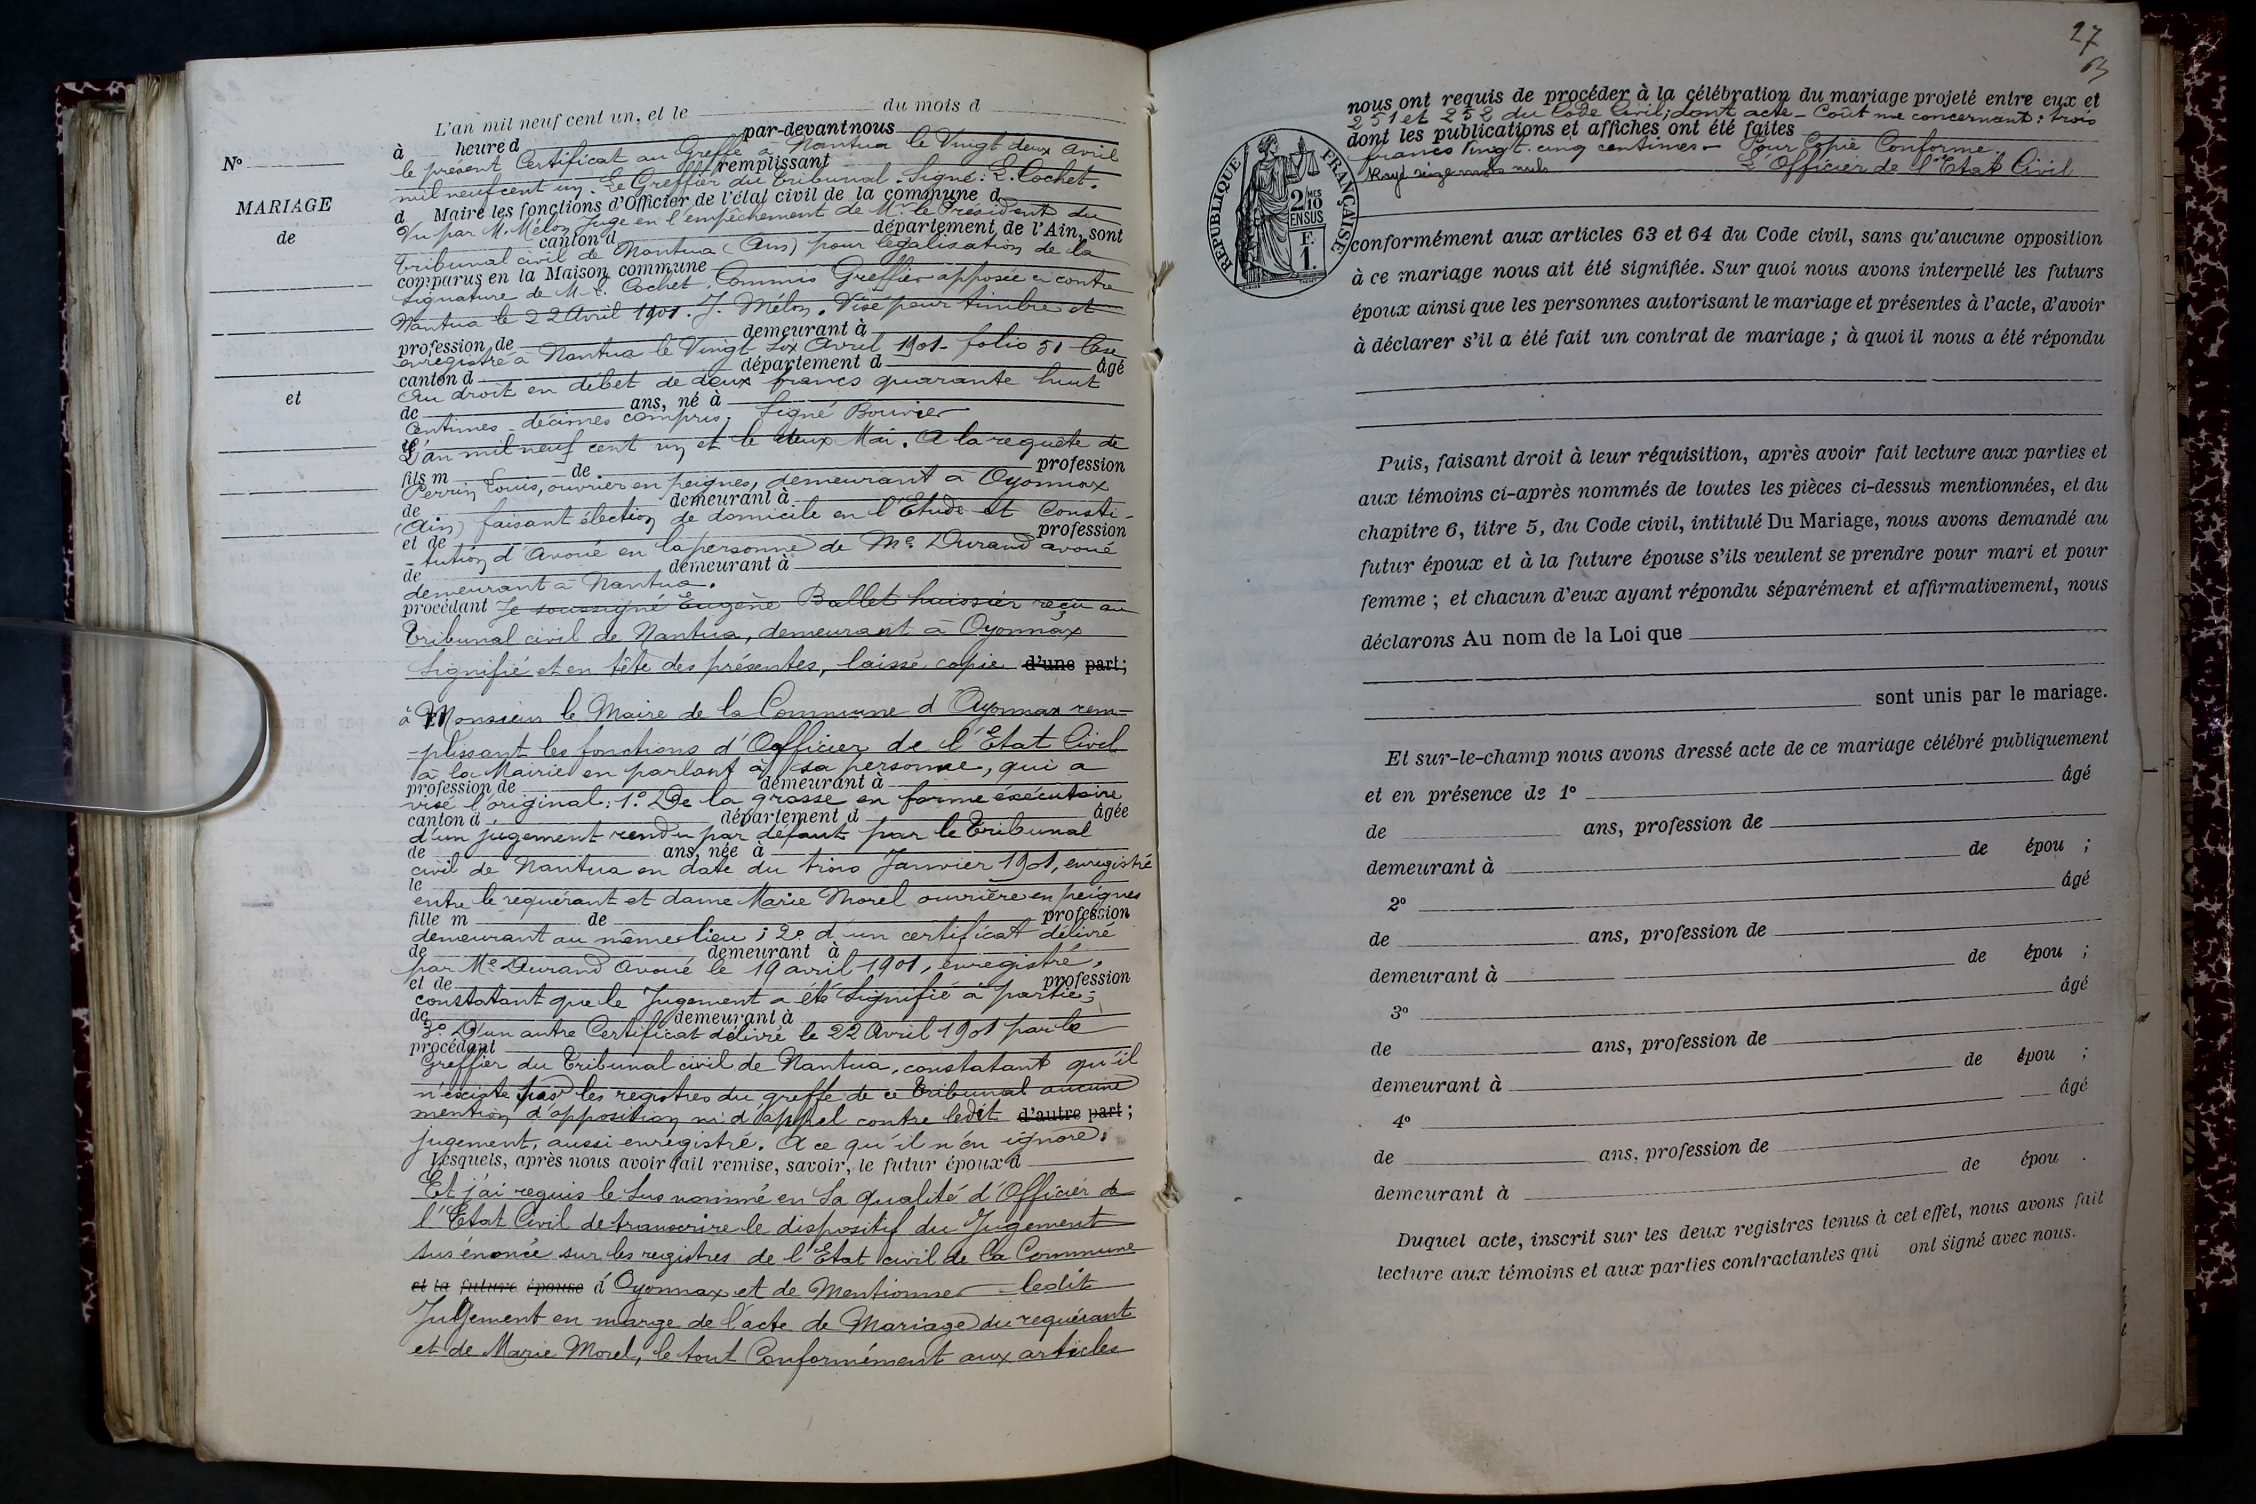 L'an mil neuf cent un, et le du mois d
à heure d par-devant nous
le présent Certificat au Greffe à Nantua le Vingt deux avril
remplissant
mil neuf cent un. Le Greffier du Tribunal. Signé: E. Cochet.
d Maire les fonctions d'Officier de l'état civil de la commune d
Vu par M. Mélon Juge en l'empêchement de Mr. le Président du
canton d département de l'Ain, sont
Tribunal civil de Nantua (Ain) pour légalisation de la
comparus en la Maison commune
signature de M. Cochet, Commis Greffier apposée ci contre
Nantua le 22 Avril 1901. J. Mélon. Visé pour timbre et
profession de demeurant à
enregistré à Nantua le Vingt six Avril 1901 - folio 51 Case
canton d département d âgé
Au droit en débet de deux francs quarante huit
de ans, né à
Centimes - décimes compris, Signé Bouvier
le
L'an mil neuf cent un et le deux Mai. A la requête de
fils m de profession
Perrin Louis, ouvrier en peignes, demeurant à Oyonnax
de demeurant à
(Ain) faisant élection de domicile en l'Etude et Consti-
et de profession
-tution d'Avoué en la personne de Me Durand avoué
de demeurant à
demeurant à Nantua.
procédant Je soussigné Eugène Ballet huissier reçu au
Tribunal civil de Nantua, demeurant à Oyonnax
Signifié et en tête des présentes, laissé copie d'une part;
à Monsieur le Maire de la Commune d'Oyonnax rem-
-plissant les fonctions d'Officier de l'Etat Civil
à la Mairie en parlant à sa personne, qui a
profession de demeurant à
visé l'original: 1º De la grosse en forme éxécutoire
canton d département d âgée
d'un jugement rendu par défaut par le Tribunal
de ans, née à
civil de Nantua en date du trois Janvier 1901, enregistré
le
entre le requérant et dame Marie Morel ouvrière en peignes
fille m de profession
demeurant au même lieu; 2º d'un certificat délivré
de demeurant à
par Me Durand Avoué le 19 avril 1901, enregistré,
et de profession
constatant que le Jugement a été Signifié à partie;
de demeurant à
3º D'un autre Certificat délivré le 22 Avril 1901 par le
procédant
Greffier du Tribunal civil de Nantua, constatant qu'il
n'existe pas les registres du greffe de ce Tribunal aucune
mention d'opposition ni d'appel contre ledit d'autre part;
jugement, aussi enregistré. A ce qu'il n'en ignore.
Lesquels, après nous avoir fait remise, savoir, le futur époux d
Et j'ai requis le Sus nommé en Sa qualité d'Officier de
l'Etat Civil de transcrire le dispositif du Jugement
sus énoncé sur les registres de l'Etat civil de la Commune
et la future épouse d'Oyonnax et de Mentionner ledit
Jugement en marge de l'acte de Mariage du requérant
et de Marie Morel, le tout Conformément aux articles
No
MARIAGE
de
et
27
nous ont requis de procéder à la célébration du mariage projeté entre eux et
251 et 252 du Code Civil; dont acte - Coût me concernant: trois
dont les publications et affiches ont été faites
francs vingt-cinq centimes - Pour Copie Conforme.
Rayé seize mots nuls L'Officier de l'Etat Civil
RÉPUBLIQUE FRANÇAISE
2/10 MES
EN SUS
F.
1.
conformément aux articles 63 et 64 du Code civil, sans qu'aucune opposition
à ce mariage nous ait été signifiée. Sur quoi nous avons interpellé les futurs
époux ainsi que les personnes autorisant le mariage et présentes à l'acte, d'avoir
à déclarer s'il a été fait un contrat de mariage; à quoi il nous a été répondu
Puis, faisant droit à leur réquisition, après avoir fait lecture aux parties et
aux témoins ci-après nommés de toutes les pièces ci-dessus mentionnées, et du
chapitre 6, titre 5, du Code civil, intitulé Du Mariage, nous avons demandé au
futur époux et à la future épouse s'ils veulent se prendre pour mari et pour
femme; et chacun d'eux ayant répondu séparément et affirmativement, nous
déclarons Au nom de la Loi que
sont unis par le mariage.
Et sur-le-champ nous avons dressé acte de ce mariage célébré publiquement
et en présence de 1º âgé
de ans, profession de
demeurant à de épou ;
2º âgé
de ans, profession de
demeurant à de épou ;
3º âgé
de ans, profession de
demeurant à de épou ;
4º âgé
de ans, profession de
demeurant à de épou .
Duquel acte, inscrit sur les deux registres tenus à cet effet, nous avons fait
lecture aux témoins et aux parties contractantes qui ont signé avec nous.